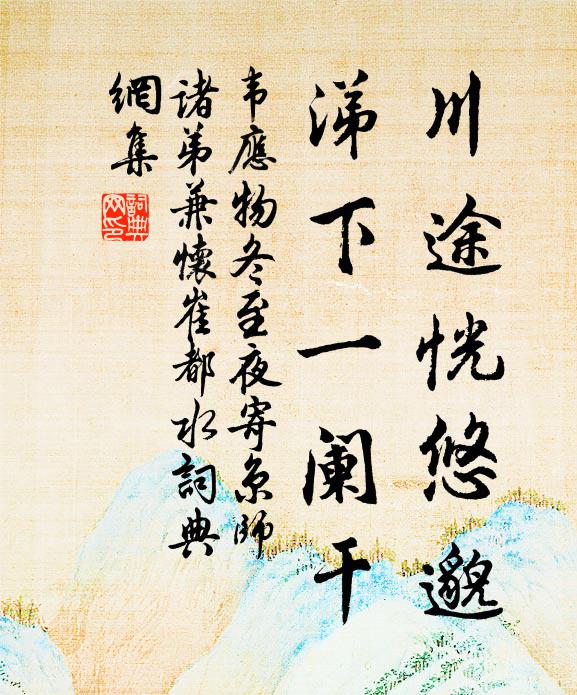 川途恍悠邈
涕下一阑干
韦應物冬至夜寄京師
諸弟兼懷崔都水詞典
網集
詞典
网印